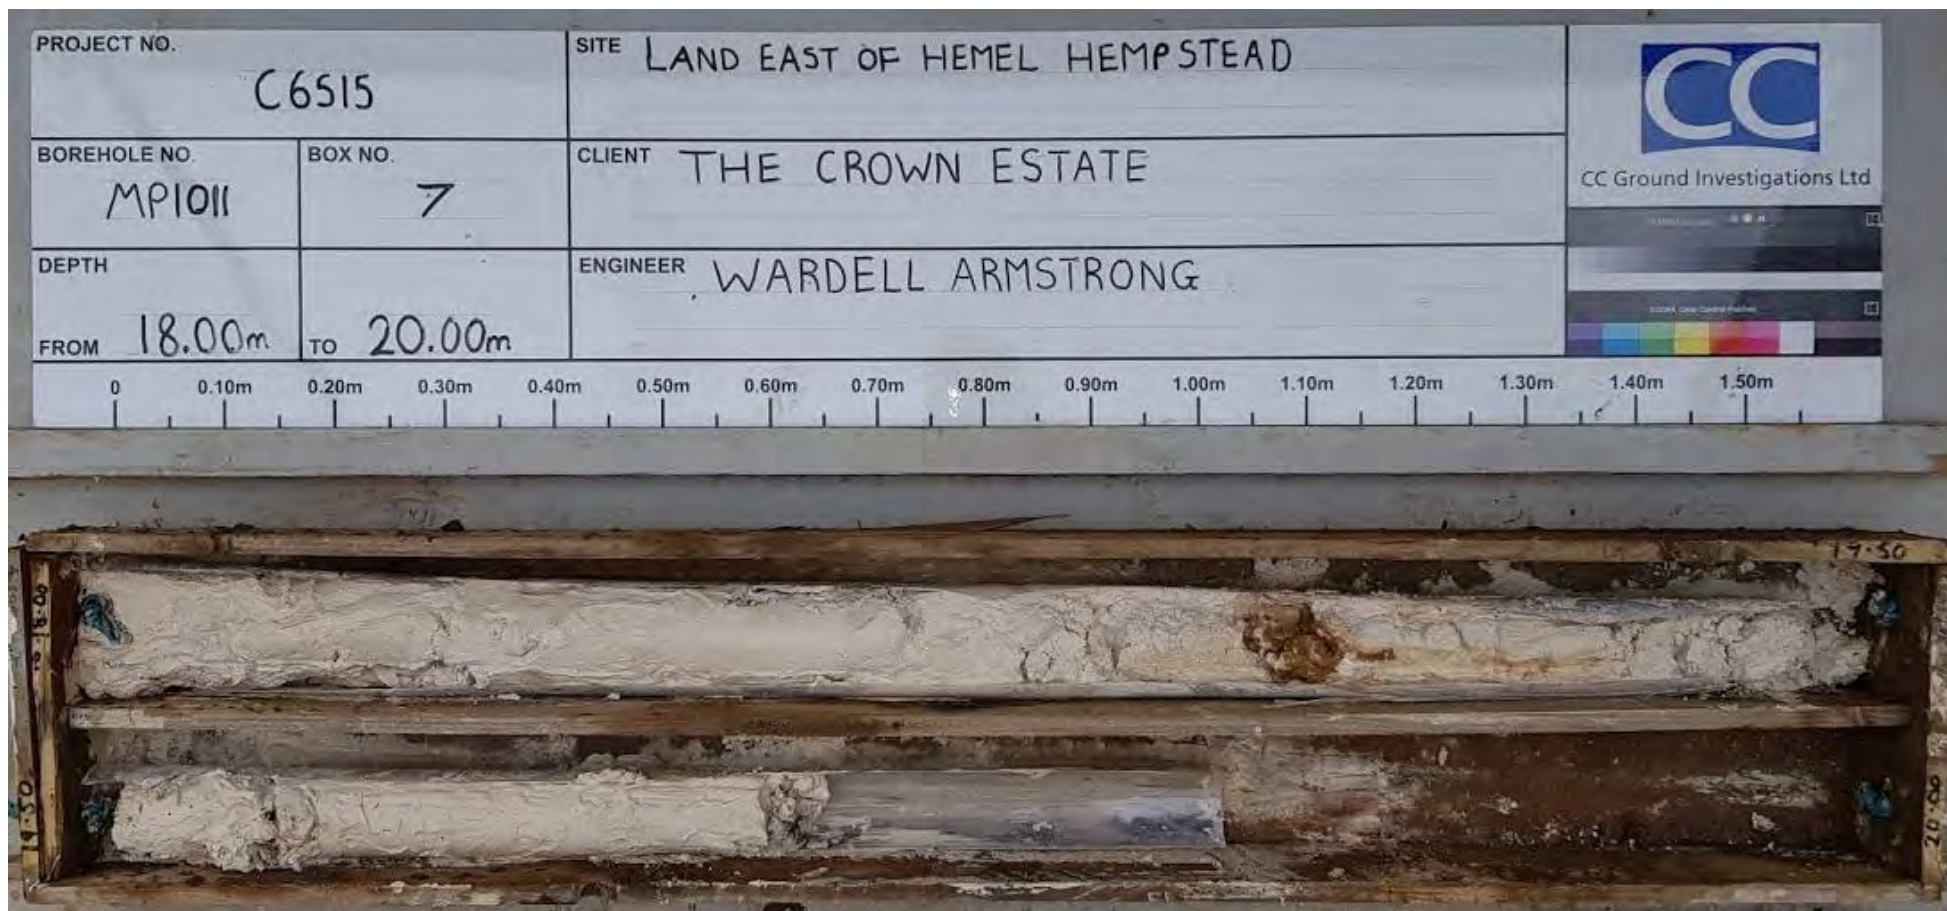 PROJECT NO.
C6515
SITE LAND EAST OF HEMEL HEMPSTEAD
CC
CC Ground Investigations Ltd
BOREHOLE NO.
MP1011
BOX NO.
7
CLIENT THE CROWN ESTATE
DEPTH
FROM 18.00m TO 20.00m
ENGINEER WARDELL ARMSTRONG
0 0.10m 0.20m 0.30m 0.40m 0.50m 0.60m 0.70m 0.80m 0.90m 1.00m 1.10m 1.20m 1.30m 1.40m 1.50m
18.00
19.50
20.00